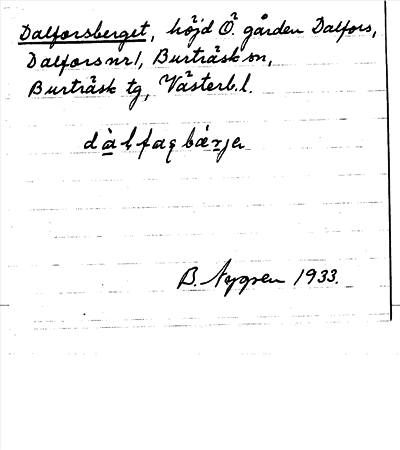 Dalforsberget, höjd Ö. gården Dalfors,
Dalfors nr 1, Burträsk sn,
Burträsk tg, Västerb. l.
B. Nygren 1933.